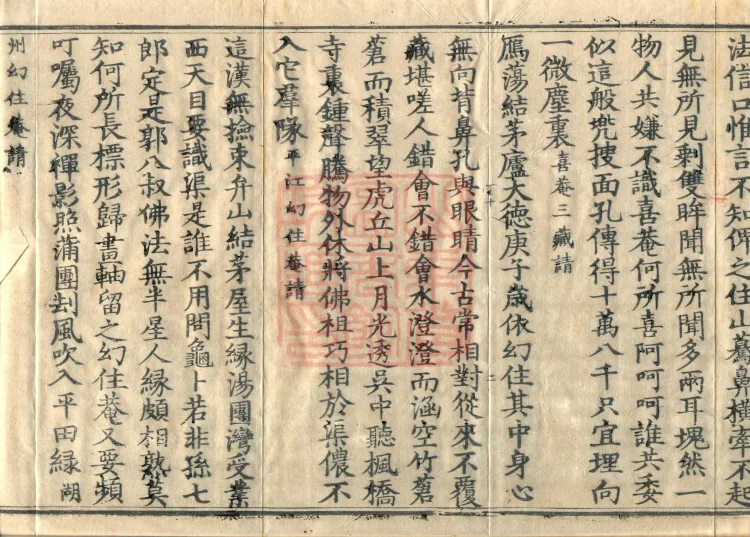 法信口惟言不知俾之住山驀鼻橫牽不起
見無所見剩雙眸聞無所聞多兩耳塊然一
物人共嫌不識喜菴何所喜阿呵呵誰共委
似這般兠搜面孔傳得十萬八千只宜埋向
一微塵裏喜菴三藏請
鴈蕩結茅廬大德庚子歲依幻住其中身心
無向背鼻孔與眼睛今古常相對從來不覆
藏堪嗟人錯會不錯會水澄澄而涵空竹蒼
蒼而積翠望虎丘山上月光透吳中聽楓橋
寺裏鍾聲騰物外休將佛祖巧相於渠儂不
入它羣隊平江幻住菴請
這漢無撿束弁山結茅屋生緣湯團灣受業
西天目要識渠是誰不用問龜卜若非孫七
郎定是郭八叔佛法無半星人緣頗相熟莫
知何所長標形歸畫軸留之幻住菴又要頻
叮囑夜深禪影照蒲團刬風吹入平田緑湖
州幻住菴請